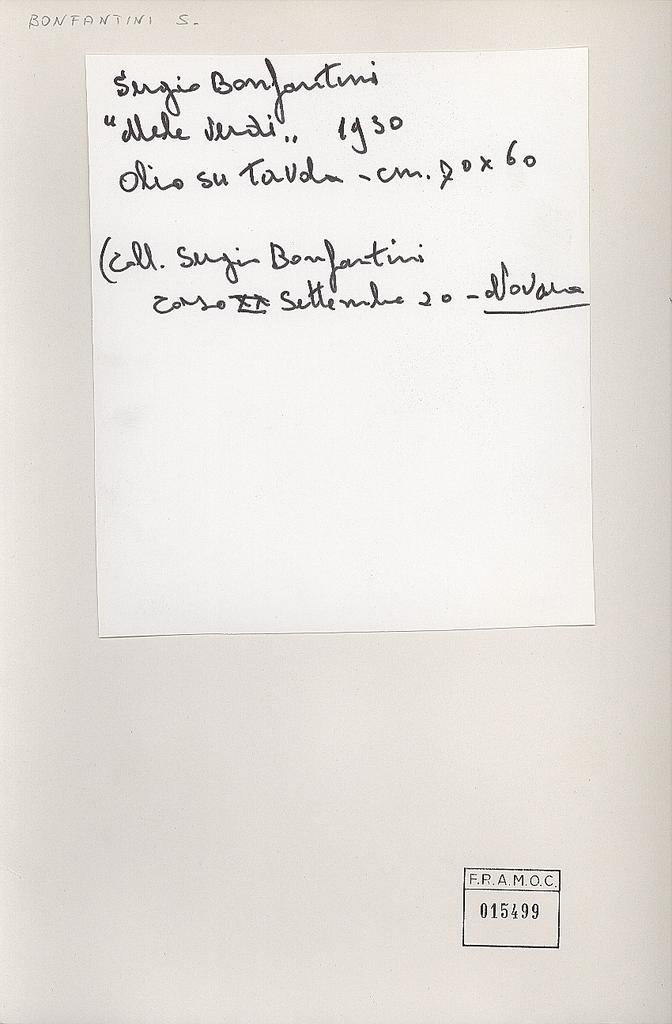 BONFANTINI S.
Sergio Bonfantini
"Mele verdi„ 1930
Olio su tavola - cm. 70 x 60
(Coll. Sergio Bonfantini
corso XX Settembre 20 - Novara
F.R.A.M.O.C.
015499